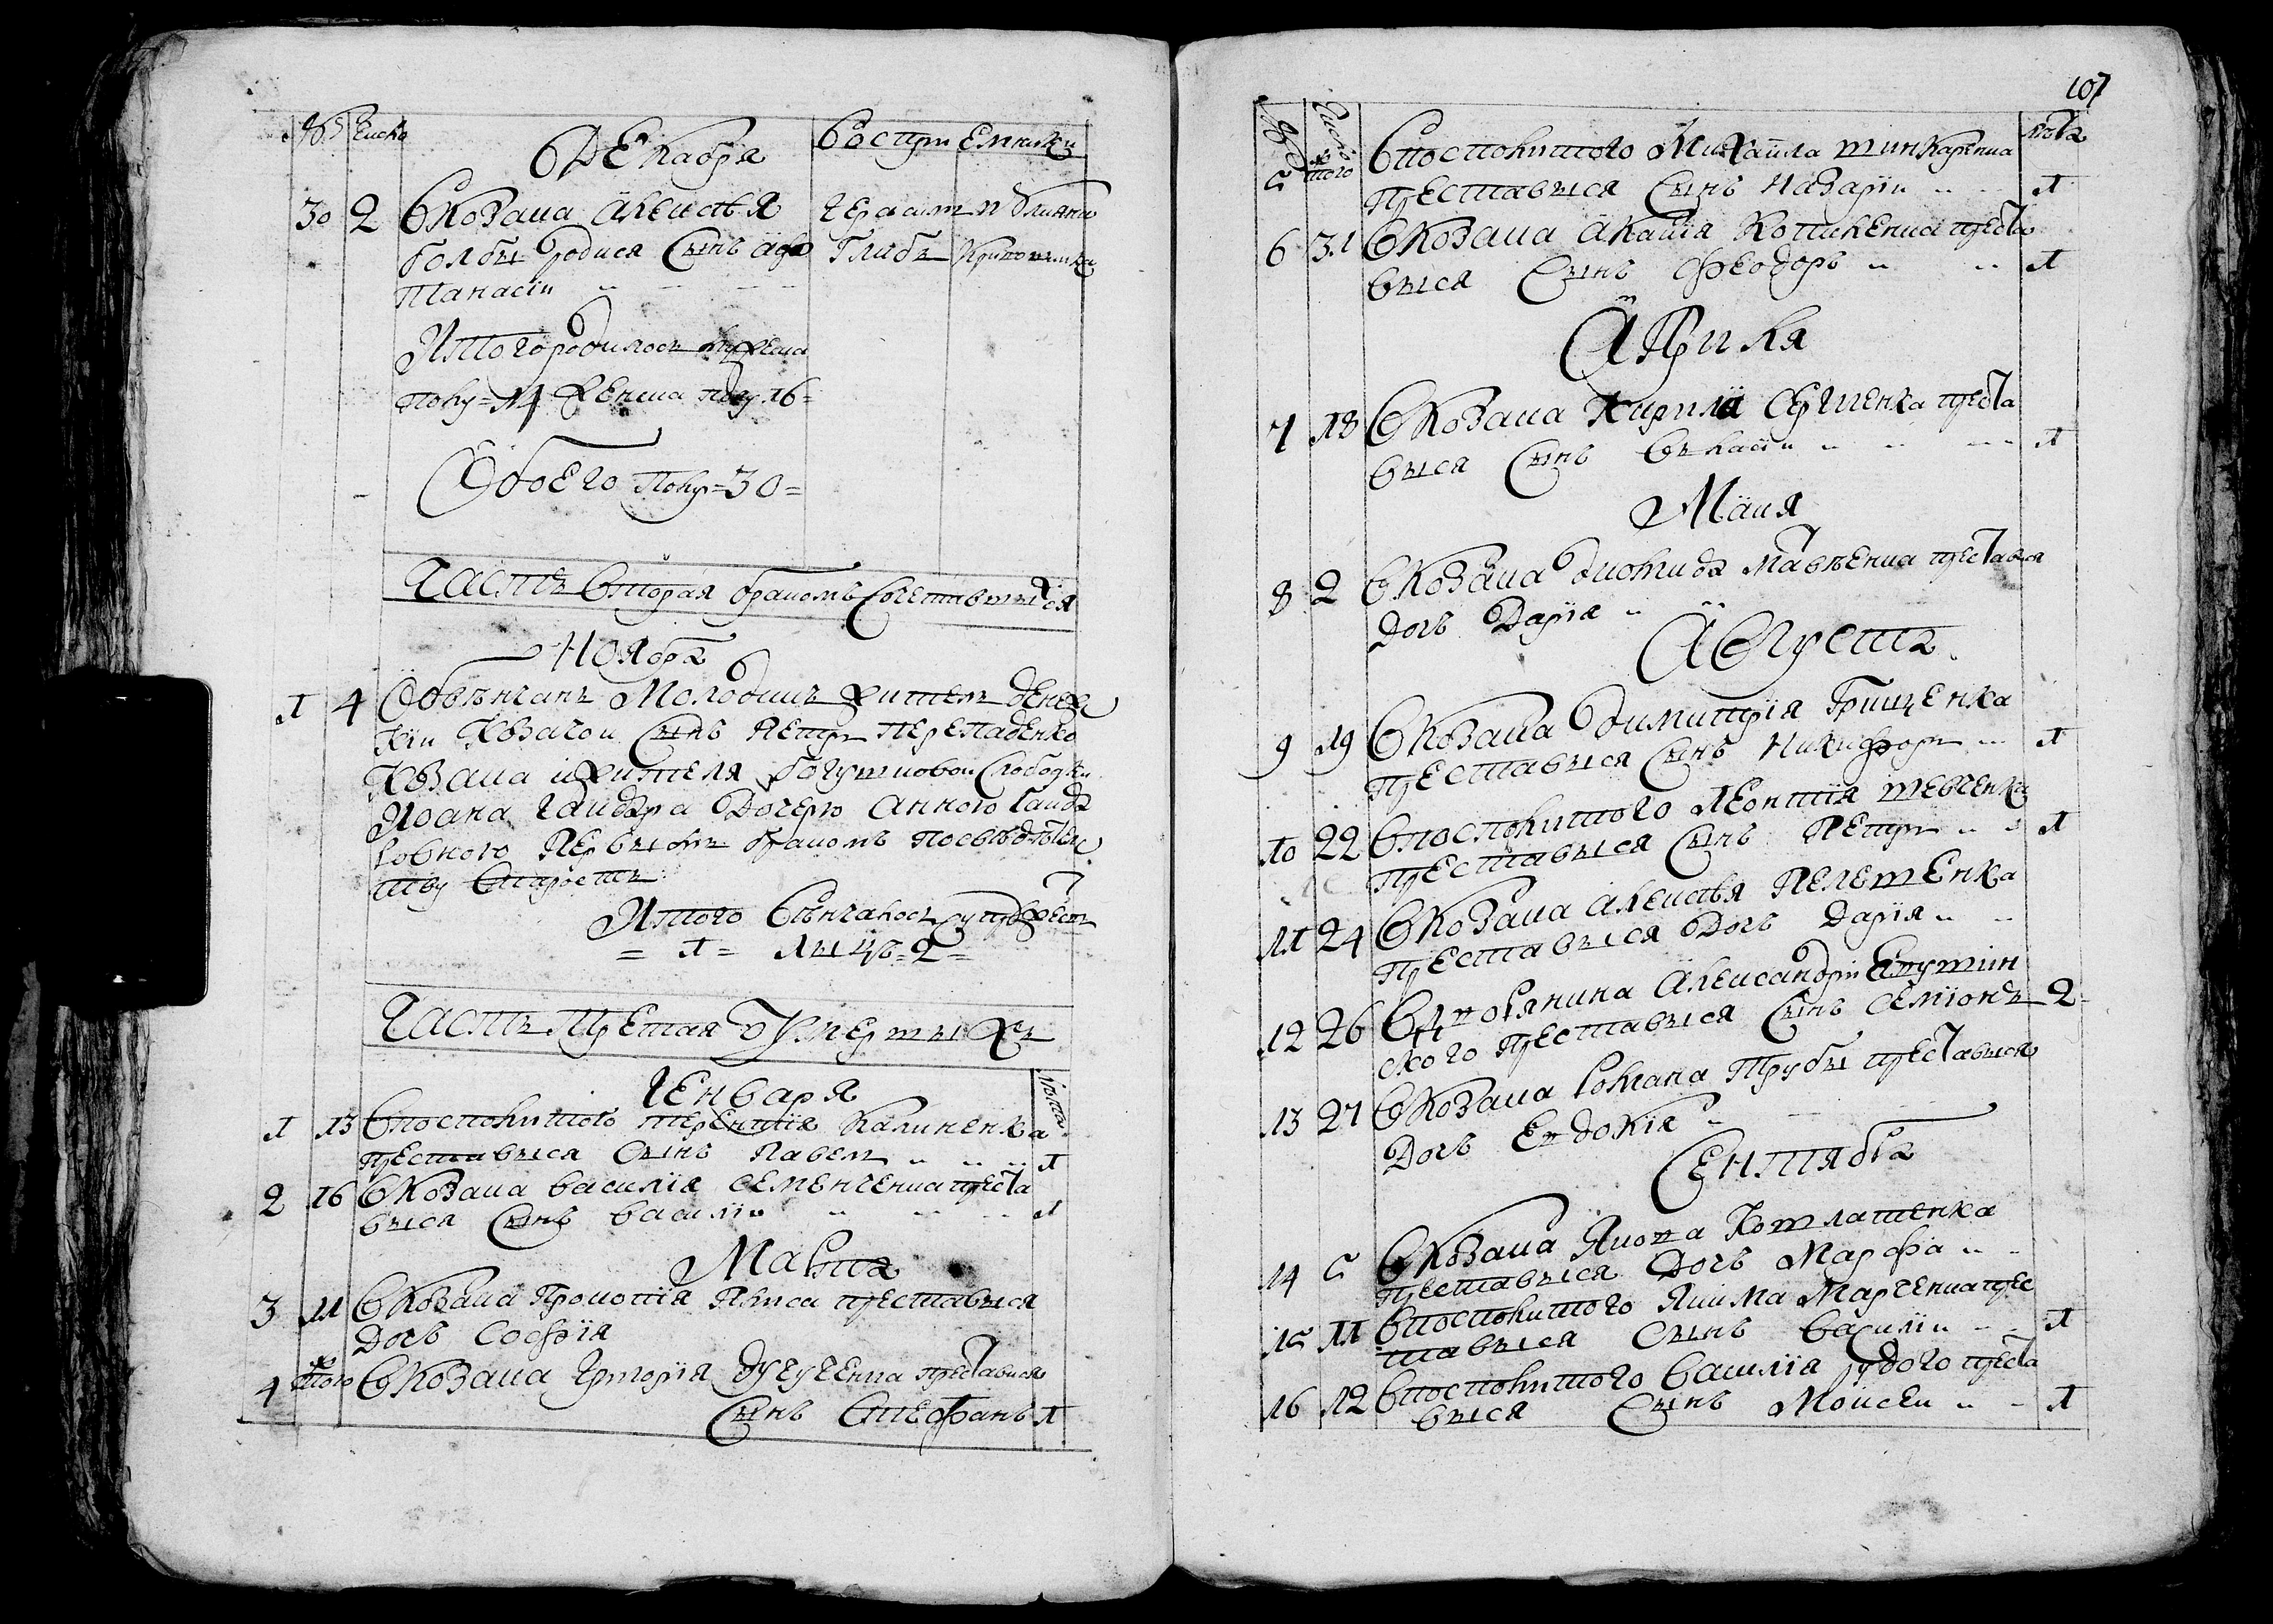 № Число Декабря Восприемники
30 2 У козака Алексѣя Герасим
болбы родися сынъ Афа Глабъ
танасiи
Итого родилося мужеска
полу = 14 женска полу 16 =
Обоего полу = 30 =
Часть вторая бракомъ сочетавшыхся
Ноября
1 4 Обвѣнчанъ молодикъ житель
козачои сынъ Петръ Перепаденко
козака и жителя слободки
Иоана Гайдара дочерю Анною Гайда
ровною первымъ бракомъ по свѣдѣтелс
тву старостъ
Итого вѣнчалось супружествъ
= 1 = лыцъ = 2 =
Часть третая умершыхъ
Генваря лѣта
1 13 У посполитого Терентiя Калиненка
преставыся сынъ Павелъ 1
2 16 У козака Василiя Семенченка преста
выся сынъ Василiи 1
Марта
3 11 У козака Прокопiя преставыся
дочь Софiя
4 того ж У козака Григорiя преставыся
сынъ Стефанъ 1
107
№ Число лѣта
5 того ж У посполитого Михаила Шинкаренка
преставыся сынъ Назарiи 1
6 31 У козака Акакiя преста
выся сынъ Феодоръ 1
Априля
7 18 У козака Кирила преста
выся сынъ Власiи 1
Маия
8 2 У козака преставыся
дочь Дарiя
Августъ
9 19 У козака Димитрiя Грищенка
преставыся сынъ Никифоръ 1
10 22 У посполитого Леонтiя Шевченка
преставыся сынъ Петръ 1
11 24 У козака Алексѣя Пелешенка
преставыся дочь Дарiя
12 26 У дворянина Александри
ского преставыся сынъ Семiонъ 2
13 27 У козака Романа Трубы преставыся
дочь Евдокiя
Сентября
14 5 У козака Якова
преставыся дочь Марфа
15 11 У посполитого Якима Марченка прес
тавыся сынъ Василiи 1
16 12 У посполитого Василiя Рудого преста
выся сынъ Моисеи 1